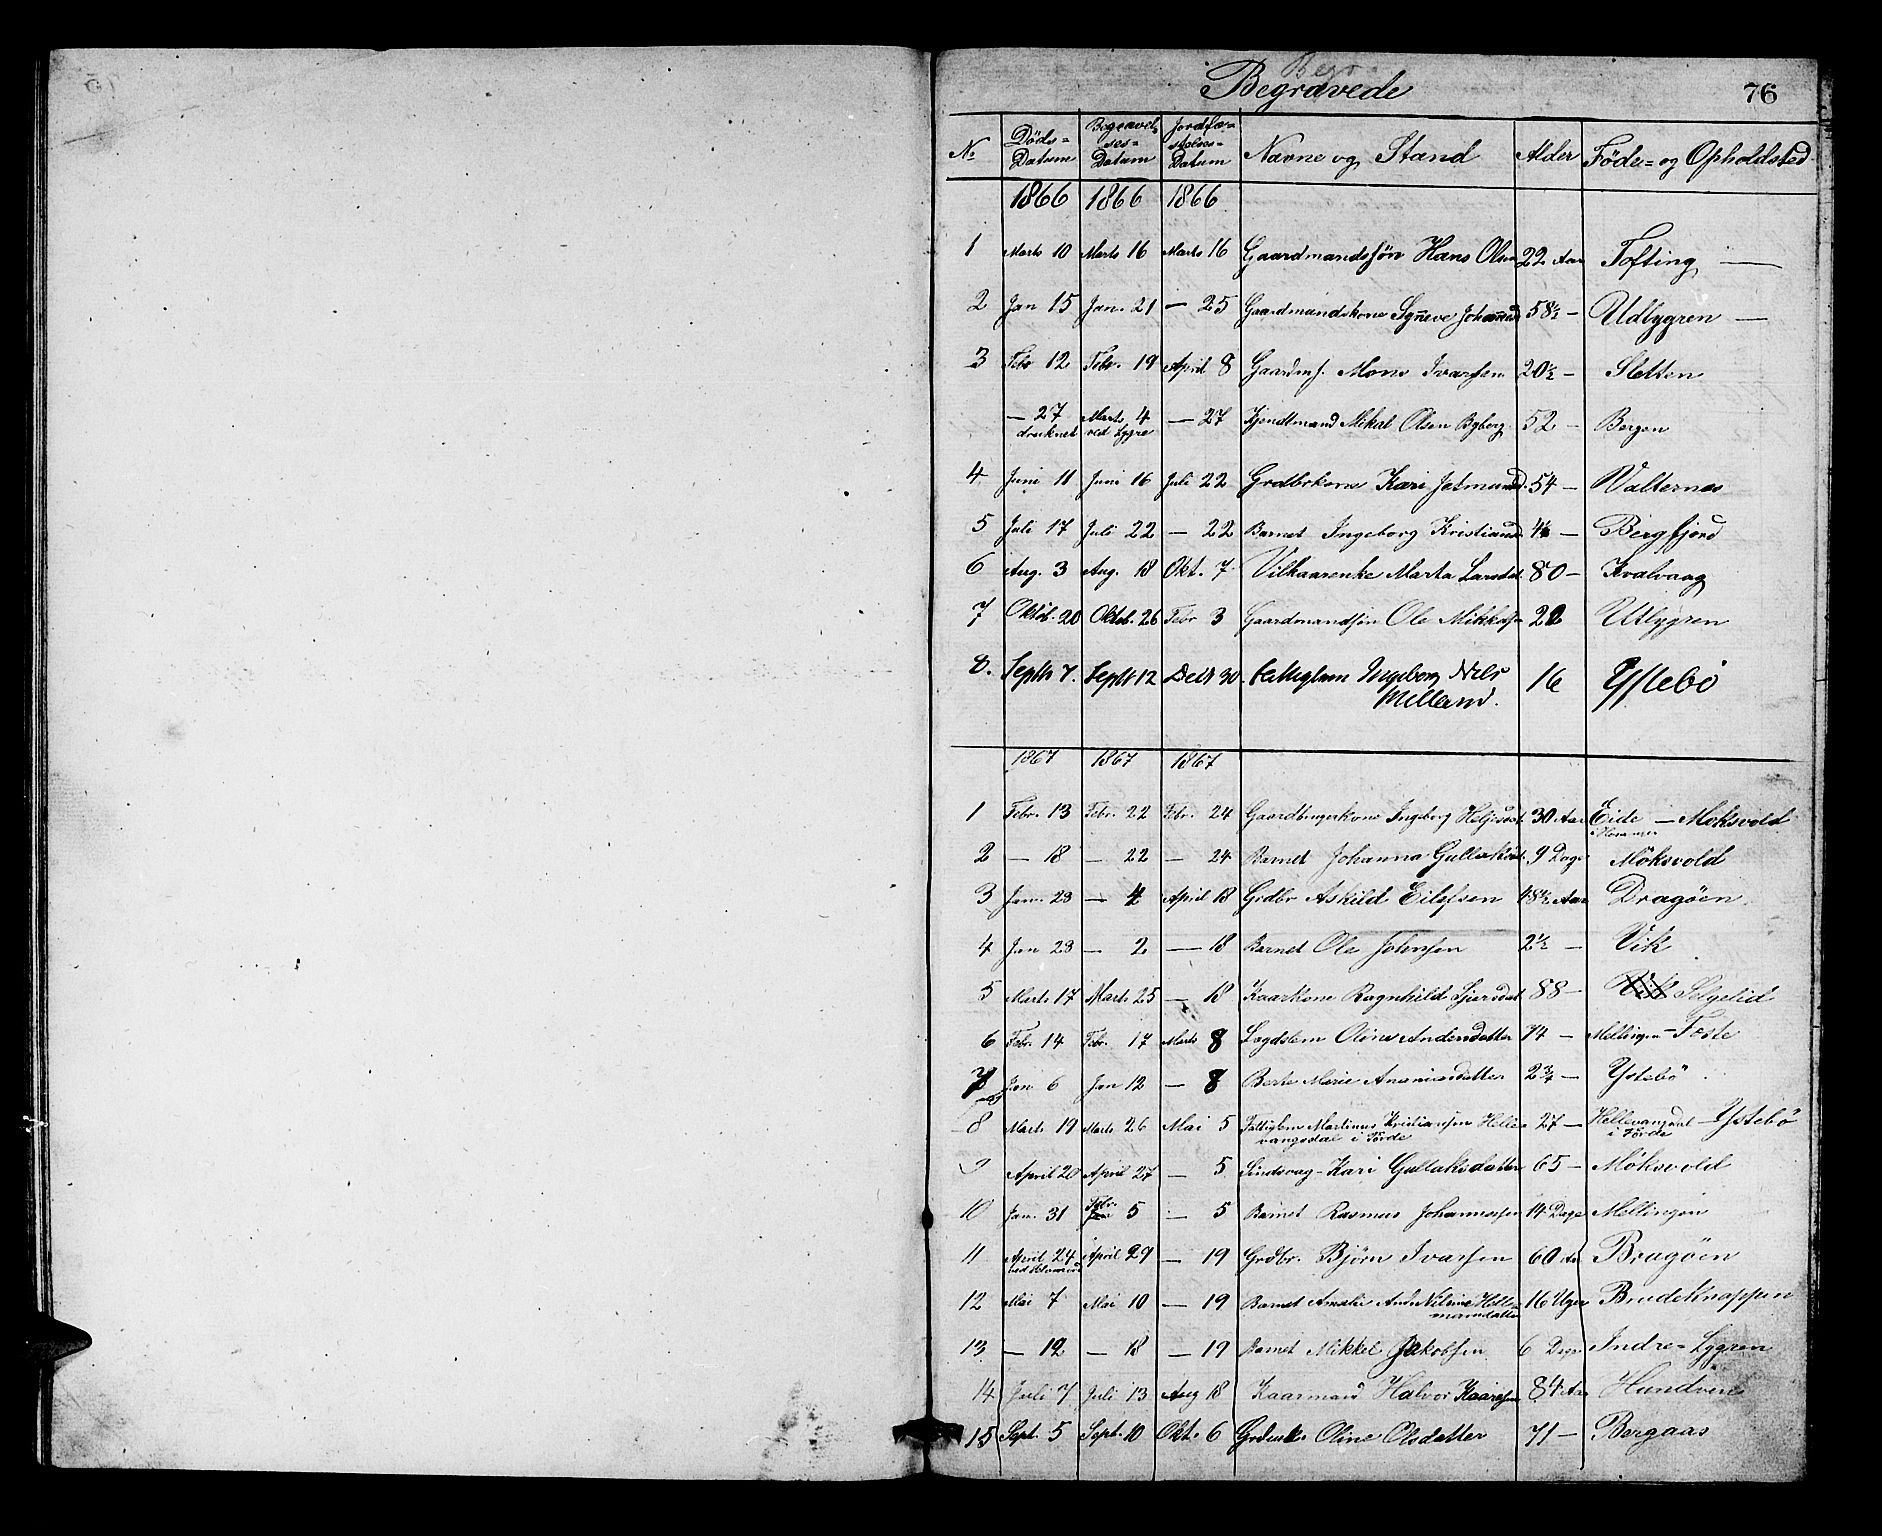 Begravede
76
No Døds-Datum Begravelses-Datum Jordfæstelses-Datum Navne og Stand Alder Føde- og Opholdsted
1866 1866 1866
1 Marts 10 Marts 16 Marts 16 Gaardmandssøn Hans Olsen 22 Aar Tofting —
2 Jan 15 Jan. 21 — 25 Gaardmandskone Synneve 58½ — Udlygren —
3 Febr 12 Febr. 19 April 8 Gaardms. Mons Ivarsen 20½ — Sletten
— 27 Marts 4 — 27 Kjendtmand Mikal Olsen Byberg 52 — Bergen
druknet ved Lygre
4 Juni 11 Juni 16 Juli 22 Grdbrkone Kari Jetmundsd. 54 — Valternes
5 Juli 17 Juli 22 — 22 Barnet Ingeborg Kristiansd — Bergfjord
6 Aug. 3 Aug. 18 Okt. 7 Vilkaarenke Marta Larsdat. 80 — Kvalvaag
7 Oktob. 20 Oktob. 26 Febr 3 Gaardmandssøn Ole Mikkelsen 22 Utlygren
8. Septbr 7. Septbr 12 Decbr 30. Fattiglem Ingeborg Nels 16 Ystebö
Melland.
1867 1867 1867
1 Febr. 13 Febr. 22 Febr. 24 Gaardbrugerkone Ingeborg Helgesdat 30 Aar Eide — Möksvold
2 — 18 — 22 — 24 Barnet Johanna Gullaksdat. 9 Dage Möksvold
3 Jan. 23 — 4 April 18 Grdbr Askild Eilefsen 48½ Aar Dragöen
4 Jan 28 — 2 — 18 Barnet Ole Johnsen 2½ — Vik
5 Marts 17 Marts 25 — 18 Kaarkone Ragnhild Sjursdat 88 — Vik Selgelid
6 Febr. 14 Febr. 17 Marts 8 Lægdslem Oline Andersdatter 74 — Mellingen — Foste
7 Jan 6 Jan 12 — 8 Berte Marie Ananiasdatter 2¾ — Ystebö
8 Marts 19 Marts 26 Mai 5 Fattiglem Martinus Kristiansen Helle- 27 — Hellevangsdal — Ystebö
vangsdal i Förde i Förde
9 April 20 April 27 — 5 Sindsvag- Kari Gullaksdatter 65 — Möksvold
10 Jan. 31 Febr. Jan 5 — 5 Barnet Rasmus Johannessen 14 Dage Mellingen
11 April 24 April 29 — 19 Grdbr. Björn Ivarsen 60 Aar Dragöen
12 Mai 7 Mai 10 — 19 Barnet Amalie Nilsine 16 Uger Brudeknappen
13 — 12 — 18 — 19 Barnet Mikkel Jakobsen 6 Dage Indre-Lygren
14 Juli 7 Juli 13 Aug 18 Kaarmand Halvor Kaaresen 84 Aar Hundvere
15 Sept. 5 Sept. 10 Okt. 6 Oline Olsdatter 71 — Bergaas